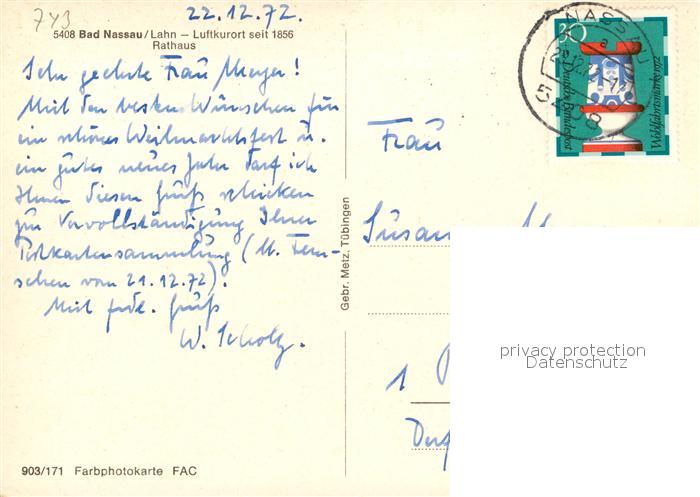 743
22.12.72.
5408 Bad Nassau/Lahn – Luftkurort seit 1856
Rathaus
Sehr geehrte Frau Meyer!
Mit den besten Wünschen für
ein schönes Weihnachtsfest u.
ein gutes neues Jahr darf ich
Ihnen diesen Gruß schicken
zur Vervollständigung Ihrer
Postkartensammlung (lt. Fern-
sehen vom 21.12.72).
Mit frdl. Gruß
W. Scholz.
Gebr. Metz, Tübingen
903/171 Farbphotokarte FAC
NASSAU
5408
30
Deutsche Bundespost
Wohlfahrtsmarke
Frau
Susan
1
privacy protection
Datenschutz